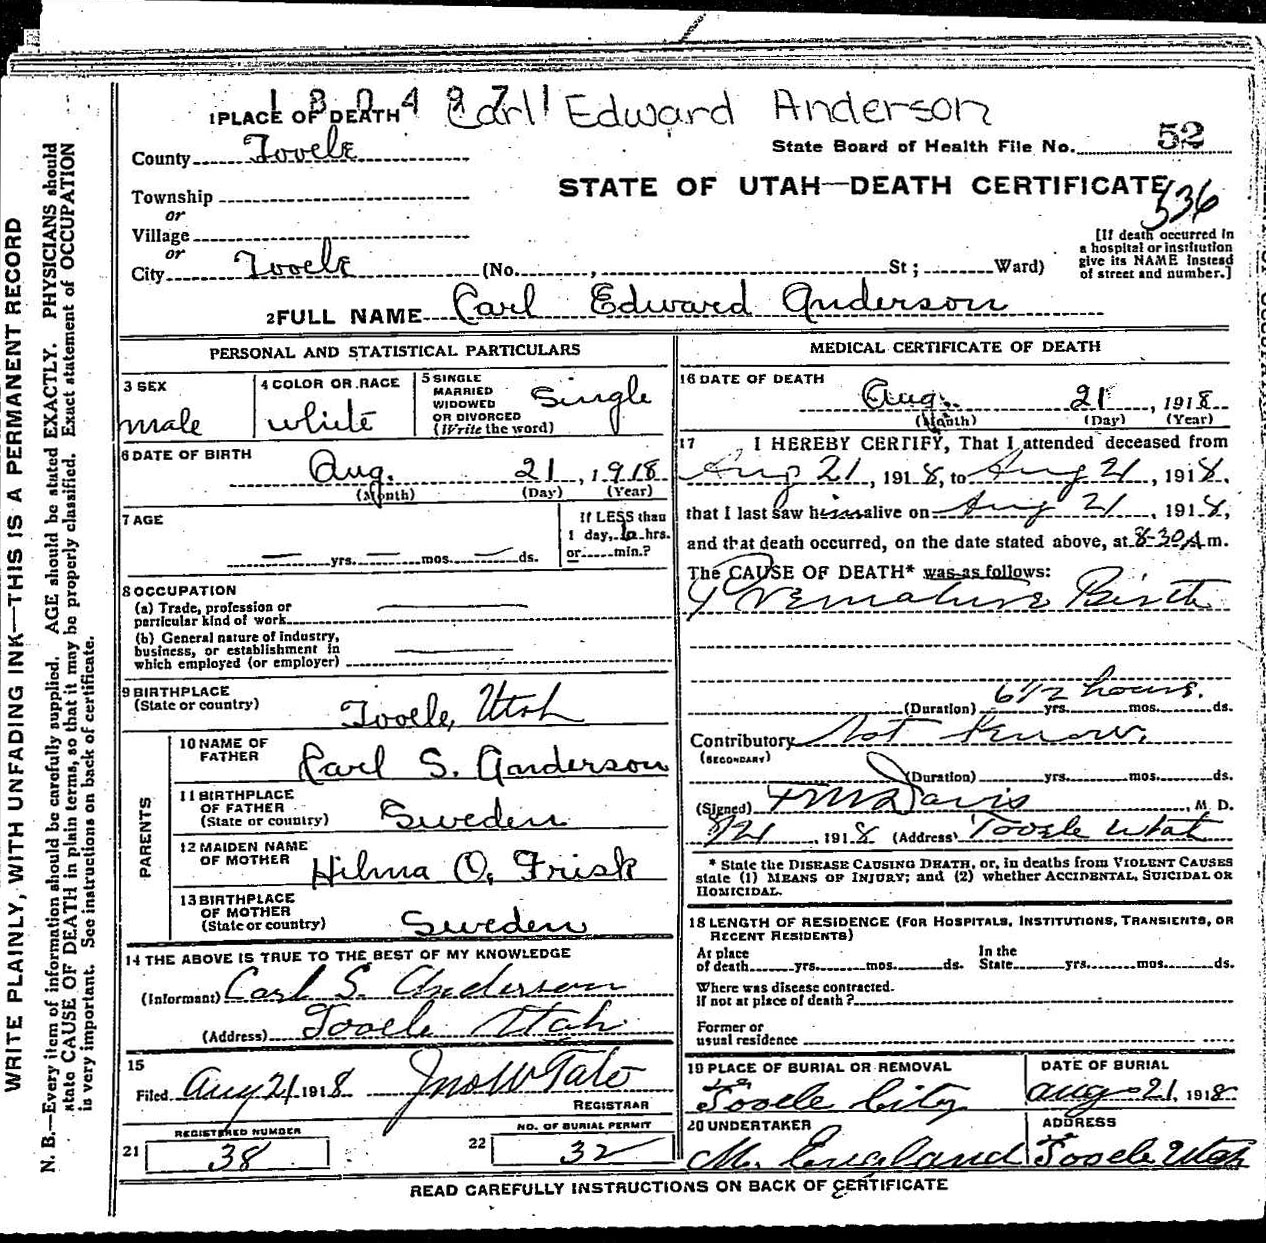 1 3 0 4 9 7 1 Carl Edward Anderson
1 PLACE OF DEATH
County Tooele
State Board of Health File No. 52
STATE OF UTAH—DEATH CERTIFICATE
536
Township
or
Village
or
City Tooele (No. , St; Ward)
[If death occurred in
a hospital or institution
give its NAME instead
of street and number.]
2 FULL NAME Carl Edward Anderson
PERSONAL AND STATISTICAL PARTICULARS
3 SEX
male
4 COLOR OR RACE
white
5 SINGLE
MARRIED
WIDOWED
OR DIVORCED
(Write the word)
Single
6 DATE OF BIRTH
Aug. 21, 1918
(Month) (Day) (Year)
7 AGE
— yrs. — mos. — ds.
If LESS than
1 day, 6 hrs.
or min.?
8 OCCUPATION
(a) Trade, profession or
particular kind of work
(b) General nature of industry,
business, or establishment in
which employed (or employer)
9 BIRTHPLACE
(State or country)
Tooele, Utah
PARENTS
10 NAME OF
FATHER
Carl S. Anderson
11 BIRTHPLACE
OF FATHER
(State or country)
Sweden
12 MAIDEN NAME
OF MOTHER
Hilma O. Frisk
13 BIRTHPLACE
OF MOTHER
(State or country)
Sweden
14 THE ABOVE IS TRUE TO THE BEST OF MY KNOWLEDGE
(Informant) Carl S. Anderson
(Address) Tooele Utah
15
Filed Aug 21 1918 Jno W Tate
REGISTRAR
21 REGISTERED NUMBER
38
22 NO. OF BURIAL PERMIT
32
MEDICAL CERTIFICATE OF DEATH
16 DATE OF DEATH
Aug. 21, 1918
(Month) (Day) (Year)
17 I HEREBY CERTIFY, That I attended deceased from
Aug 21, 1918, to Aug 21, 1918,
that I last saw him alive on Aug 21, 1918,
and that death occurred, on the date stated above, at 8-30 A m.
The CAUSE OF DEATH* was as follows:
Premature Birth
6 1/2 hours.
(Duration) yrs. mos. ds.
Contributory Not Know.
(SECONDARY)
(Duration) yrs. mos. ds.
(Signed) Davis, M D.
8/21, 1918 (Address) Tooele Utah
* State the DISEASE CAUSING DEATH, or, in deaths from VIOLENT CAUSES
state (1) MEANS OF INJURY; and (2) whether ACCIDENTAL, SUICIDAL OR
HOMICIDAL.
18 LENGTH OF RESIDENCE (FOR HOSPITALS, INSTITUTIONS, TRANSIENTS, OR
RECENT RESIDENTS)
At place
of death yrs. mos. ds.
In the
State yrs. mos. ds.
Where was disease contracted.
If not at place of death?
Former or
usual residence
19 PLACE OF BURIAL OR REMOVAL
Tooele City
DATE OF BURIAL
Aug 21, 1918
20 UNDERTAKER
M. England
ADDRESS
Tooele Utah
READ CAREFULLY INSTRUCTIONS ON BACK OF CERTIFICATE
WRITE PLAINLY, WITH UNFADING INK—THIS IS A PERMANENT RECORD
N. B.—Every item of information should be carefully supplied. AGE should be stated EXACTLY. PHYSICIANS should
state CAUSE OF DEATH in plain terms, so that it may be properly classified. Exact statement of OCCUPATION
is very important. See instructions on back of certificate.